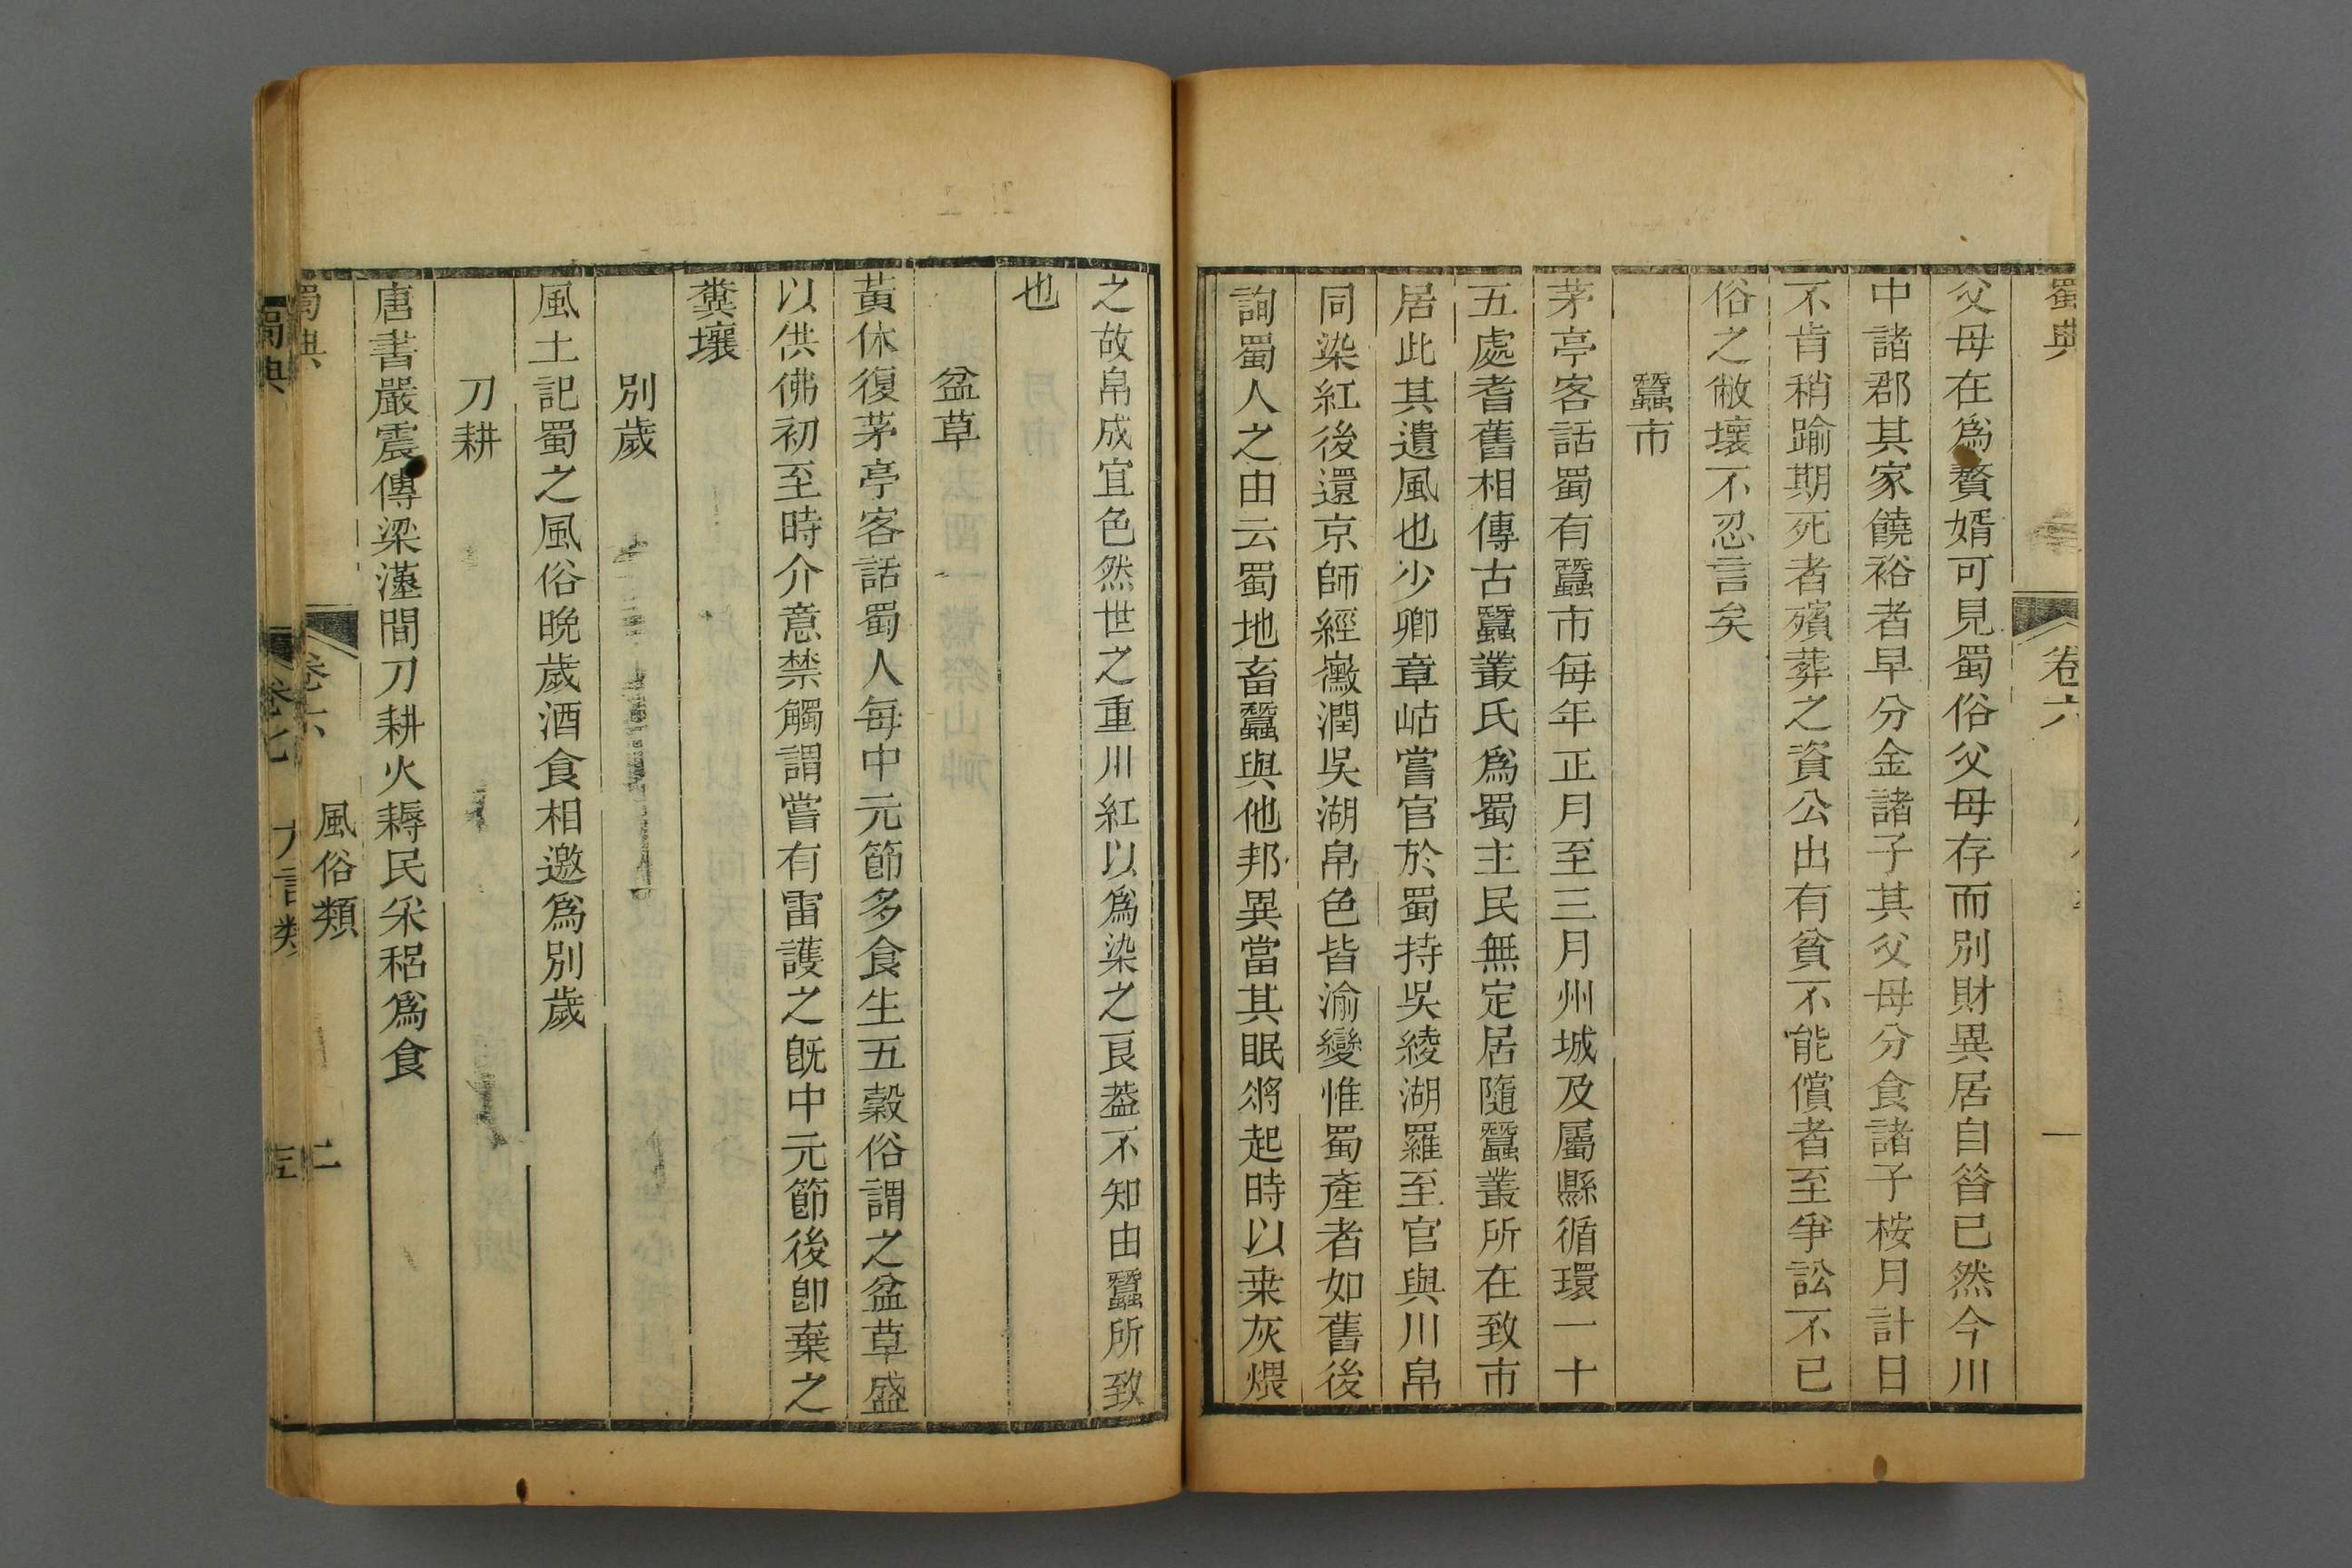 蜀典
卷六
一
父母在爲贅婿可見蜀俗父母存而別財異居自昝已然今川
中諸郡其家饒裕者早分金諸子其父母分食諸子桉月計日
不肯稍踰期死者殯葬之資公出有貧不能償者至爭訟不已
俗之敝壞不忍言矣
蠶市
茅亭客話蜀有蠶市每年正月至三月州城及屬縣循環一十
五處耆舊相傳古蠶叢氏爲蜀主民無定居隨蠶叢所在致市
居此其遺風也少卿章岵嘗官於蜀持吳綾湖羅至官與川帛
同染紅後還京師經黴潤吳湖帛色皆渝變惟蜀產者如舊後
詢蜀人之由云蜀地畜蠶與他邦異當其眠將起時以桒灰煨
之故帛成宜色然世之重川紅以爲染之良葢不知由蠶所致
也
盆草
黃休復茅亭客話蜀人每中元節多食生五糓俗謂之盆草盛
以供佛初至時介意禁觸謂嘗有雷護之旣中元節後卽棄之
糞壤
別歲
風土記蜀之風俗晚歲酒食相邀爲別歲
刀耕
唐書嚴震傳梁漢間刀耕火耨民采稆爲食
蜀典
卷六
風俗類
二
卷七